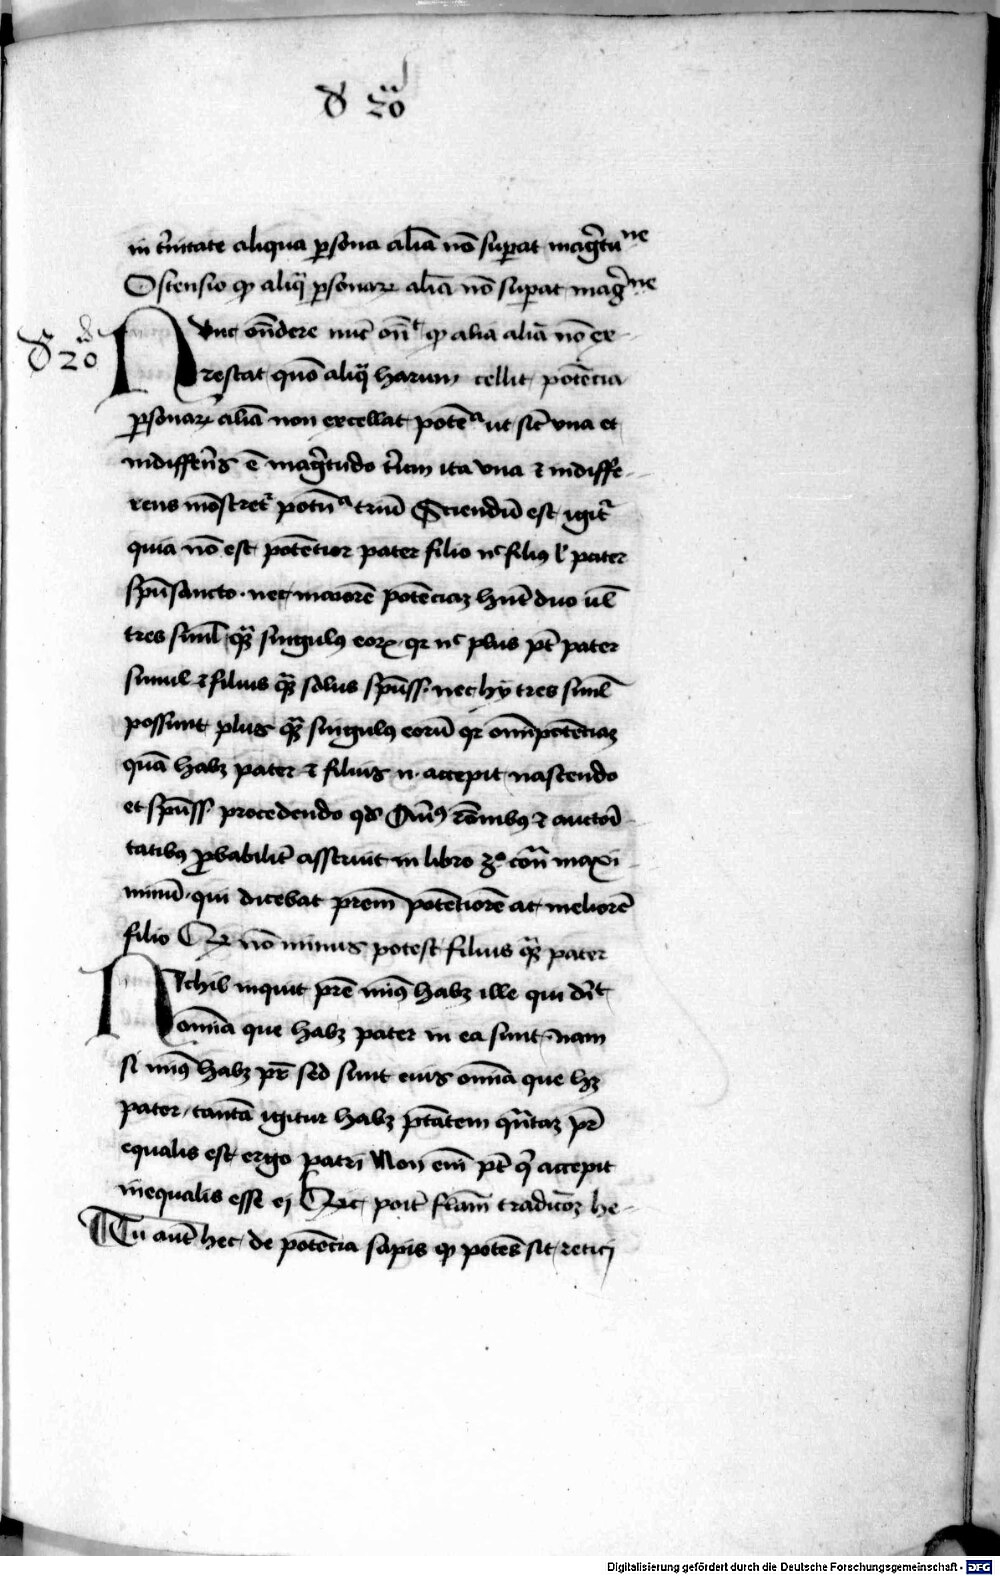 ꝺ 20
in t̄nitate aliqua ꝑsona alia̅ no̅ suꝑat mag̅tu ne
Ostensio ꝙ aliq̅ ꝑsonaꝝ alia̅ no̅ suꝑat mag̅ ne
ꝺ 20
Nunc on̅dere nu̅c on̅ ꝙ alia alia̅ no̅ ex-
restat quo̅ aliq̅ harum cellit pote̅cia
ꝑsonaꝝ alia̅ non excellat pote̅ᵃ ut sic̅ vna et
indiffere̅s e̅ mag̅tudo triu̅ ita vna ⁊ indiffe-
rens mo̅stret̅ potn̅ᵃ triu̅ Sciendu̅ est igit̅
quia no̅ est pote̅tior pater filio nͨ filiꝯ ł pater
sp̅usancto nec maiore̅ pote̅ciaꝫ hn̅t duo ul̅
tres siml̅ qꝫ singulꝯ eoꝝ qr nͨ plus pt̅ pater
simul ⁊ filius qꝫ solus sp̅uss nec hy tres siml̅
possunt plus qꝫ singulꝯ eoru̅ qr om̅ipote̅ciaꝫ
qua̅ habꝫ pater ⁊ filius accepit nascendo
et sp̅uss procedendo qd Aug̅ ro̅nibꝯ ⁊ auctori̅
tatibꝯ ꝓbabilit̅ asserunt in libro 3º con̅ maxi
minu̅ qui dicebat pr̅em pote̅tiore̅ ac meliore̅
filio Qr no̅ minus potest filius qꝫ pater
Nichil inquit pr̅e minꝯ habꝫ ille qui dic̅
omnia que habꝫ pater m ea sunt nam
si minꝯ habꝫ pr̅ sed sunt eius om̅ia que hꝫ
pater tanta̅ igitur habꝫ pt̅atem qn̅taꝫ pr̅
equalis est ergo patri Non em̅ pt̅ qi accepit
inequalis esse ei Qic poit̅ sc̅am tradic̅oꝫ he-
Tu aut̅ hec de pote̅cia sapis ꝙ pote̅s sit reticj
Digitalisierung gefördert durch die Deutsche Forschungsgemeinschaft - DFG